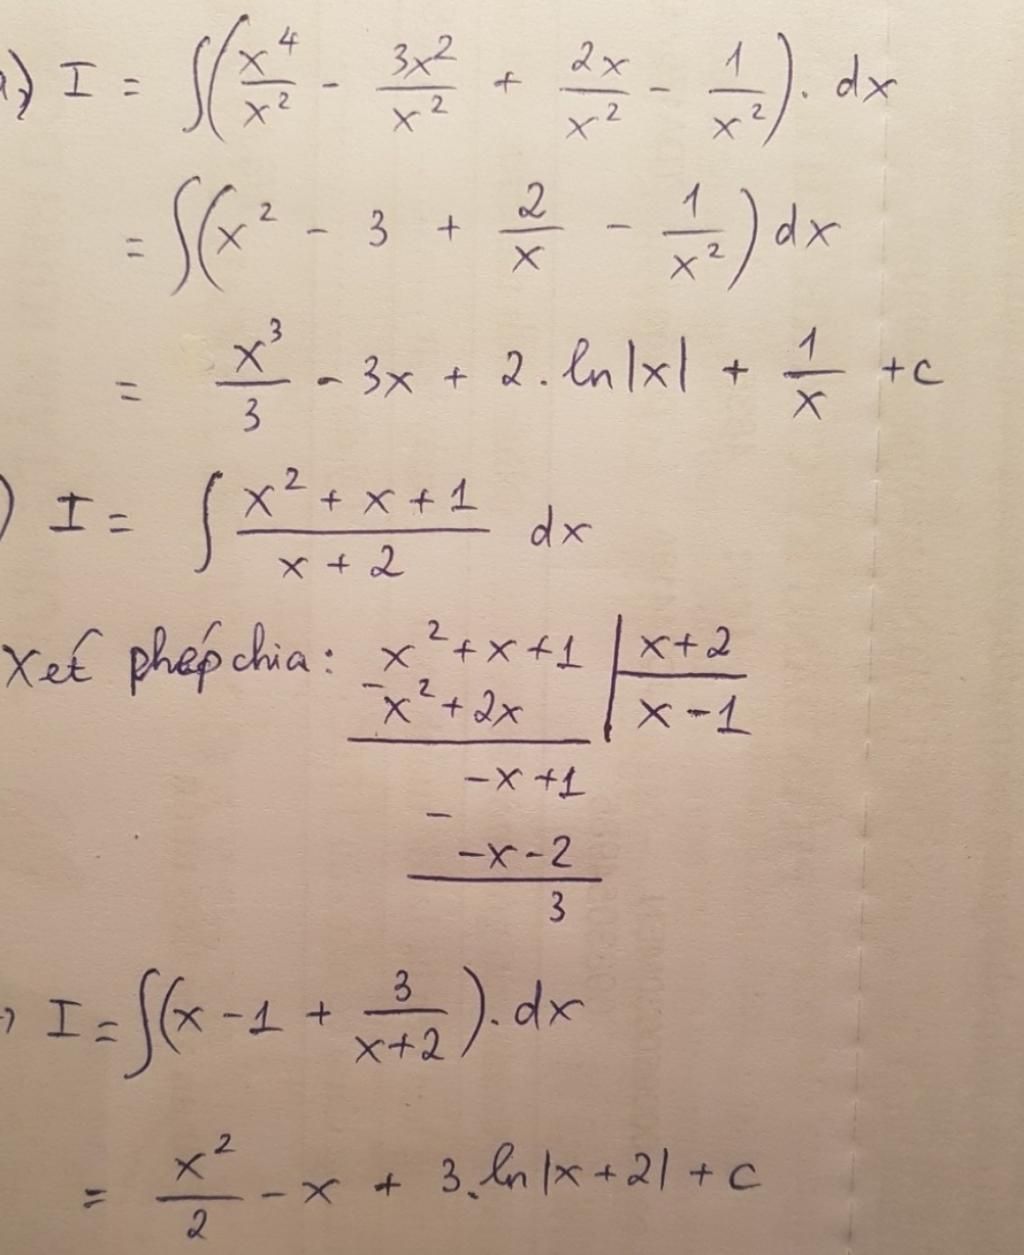 a) I = ∫(x⁴/x² - 3x²/x² + 2x/x² - 1/x²). dx
= ∫(x² - 3 + 2/x - 1/x²) dx
= x³/3 - 3x + 2. ln|x| + 1/x + c
) I = ∫ (x² + x + 1)/(x + 2) dx
Xét phép chia: x² + x + 1 | x + 2
- x² + 2x | x - 1
-x + 1
-
-x - 2
3
→ I = ∫(x - 1 + 3/(x+2)). dx
= x²/2 - x + 3. ln|x + 2| + c